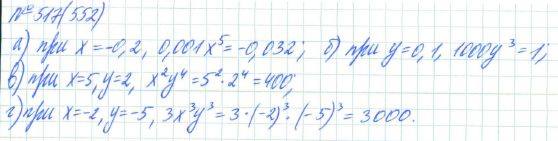 № 517(552)
а) при x = -0,2, 0,001x⁵ = -0,032; б) при y = 0,1, 1000y³ = 1;
в) при x=5, y=2, x²y⁴ = 5² · 2⁴ = 400;
г) при x=-2, y=-5, 3x³y³ = 3 · (-2)³ · (-5)³ = 3000.